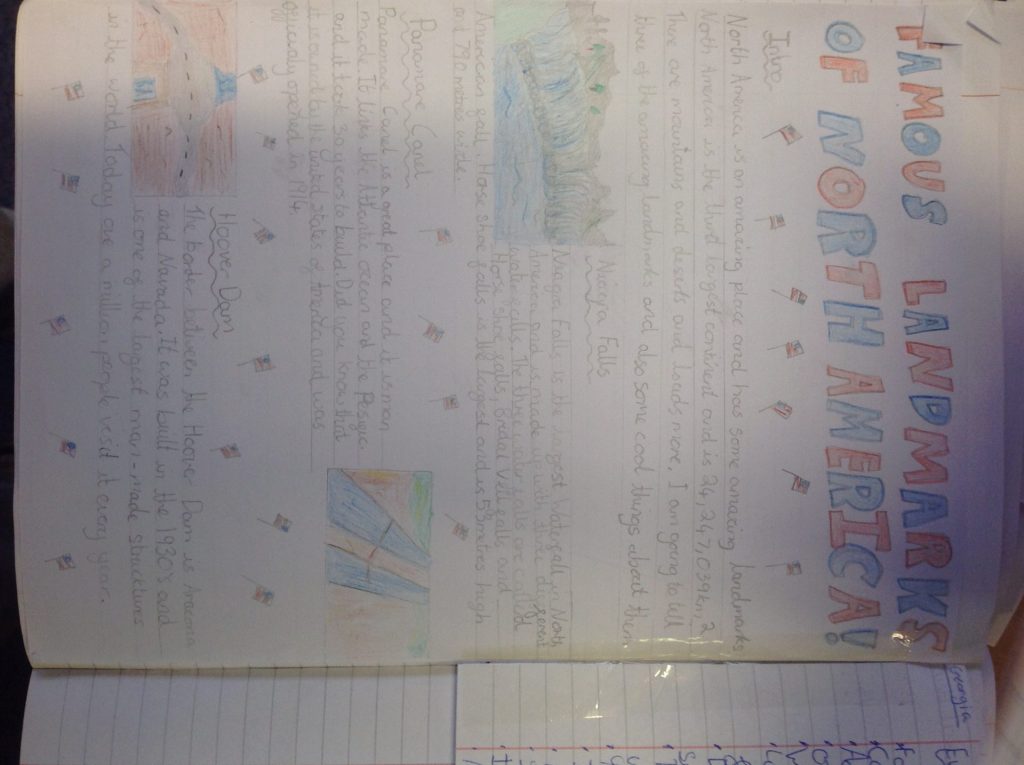 FAMOUS LANDMARKS
OF NORTH AMERICA!
Intro
North America is an amazing place and has some amazing landmarks
North America is the third largest continent and is 24,247,039km,2
There are mountains and deserts and loads more, I am going to tell
three of the amazing landmarks and also some cool things about them
Niagra Falls
Niagra Falls is the largest Waterfall in North
America and is made up with three different
waterfalls. The three water falls are called
Horse shoe falls, Bridal Veil falls and
American fall. Horse shoe falls is the largest and is 53 metres high
and 790 metres wide.
Pananare Canel
Pananare Canel is a great place and it is man
made. It links the Atlantic ocean and the Pasific.
and it took 30 years to build. Did you know, that
it is owned by the United States of America and was
officialy opened in 1914.
Hoover Dam
The border between the Hoover Dam is Arizona
and Navada. It was built in the 1930s and
is one of the largest man-made structures
in the world. Today one a million people visit it every year.
Georgia